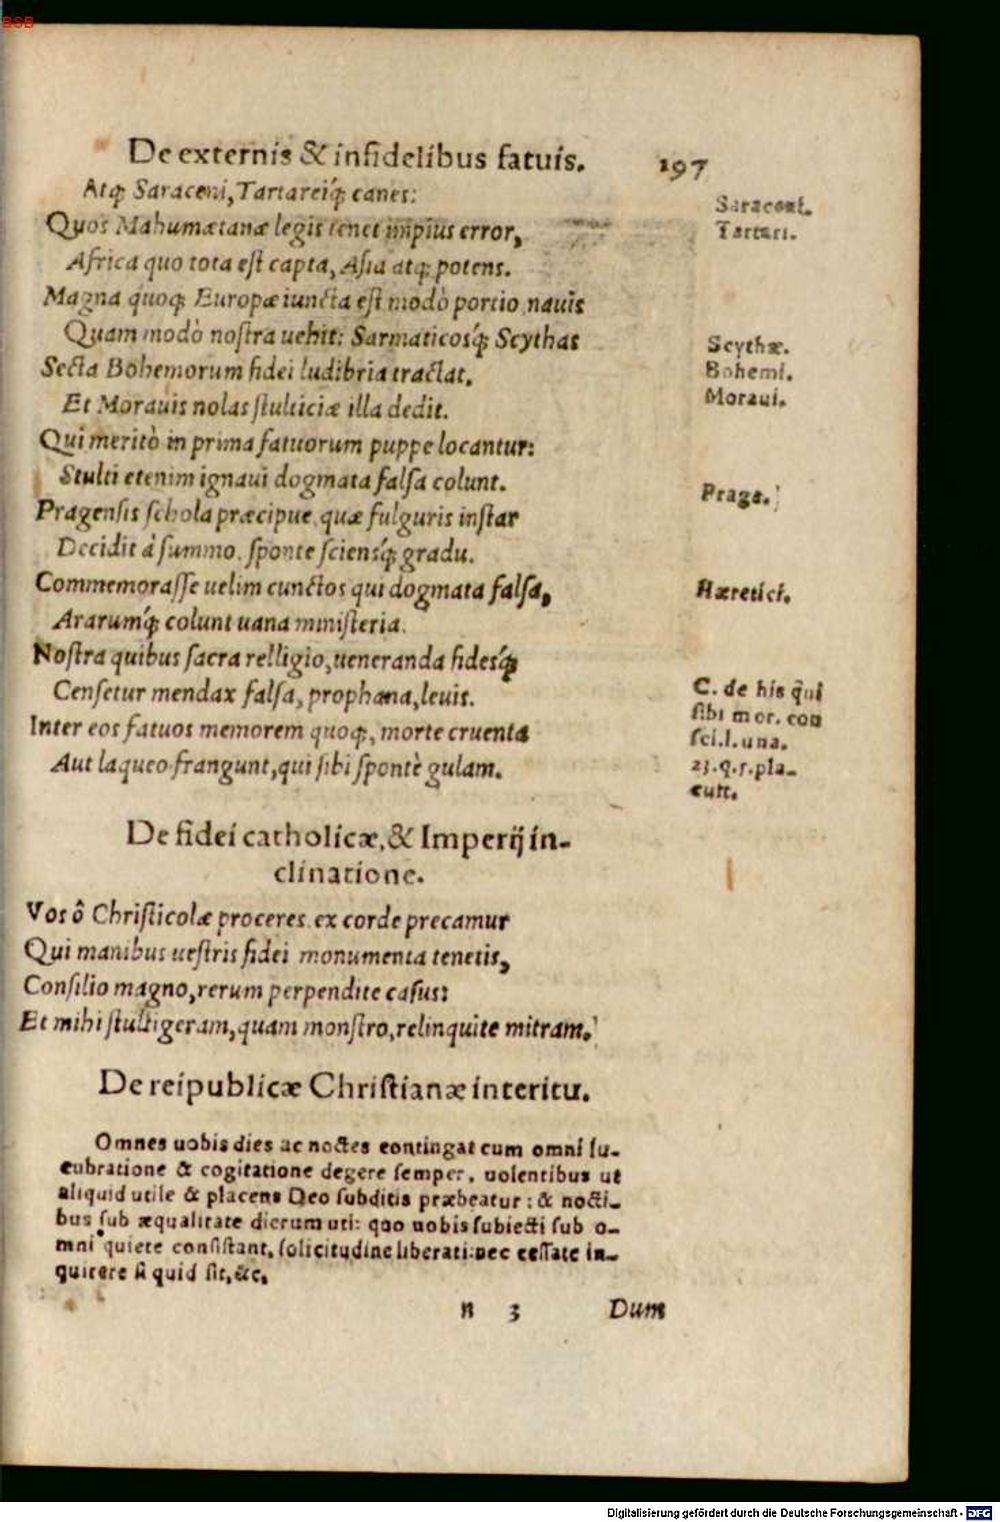 BSB
De externis & infidelibus fatuis. 197
Atq́; Saraceni, Tartareiq́; canes:
Saraceni.
Quos Mahumætanæ legis tenet impius error,
Tartari.
Africa quo tota eſt capta, Aſia atq; potens.
Magna quoq; Europæ iuncta eſt modò portio nauis
Quam modò noſtra uehit: Sarmaticosq́; Scythas
Scythæ.
Secta Bohemorum fidei ludibria tractat.
Bohemi.
Et Morauis nolas ſtulticiæ illa dedit.
Moraui.
Qui meritò in prima fatuorum puppe locantur:
Stulti etenim ignaui dogmata falſa colunt.
Praga.
Pragenſis ſchola præcipue, quæ fulguris inſtar
Decidit à ſummo, ſponte ſciensq́; gradu.
Commemoraſſe uelim cunctos qui dogmata falſa,
Hæretici.
Ararumq́; colunt uana miniſteria.
Noſtra quibus ſacra relligio, ueneranda fidesq́;
Cenſetur mendax falſa, prophana, leuis.
C. de his q̃ui
ſibi mor. con
Inter eos fatuos memorem quoq;, morte cruenta
ſci.l.una.
Aut laqueo frangunt, qui ſibi ſpontè gulam.
23.q.5.pla-
cuit.
De fidei catholicæ, & Imperĳ in-
clinatione.
Vos ô Chriſticolæ proceres ex corde precamur
Qui manibus ueſtris fidei monumenta tenetis,
Conſilio magno, rerum perpendite caſus:
Et mihi ſtultigeram, quam monſtro, relinquite mitram.
De reipublicæ Chriſtianæ interitu.
Omnes uobis dies ac noctes contingat cum omni lu-
cubratione & cogitatione degere ſemper, uolentibus ut
aliquid utile & placens Deo ſubditis præbeatur: & nocti-
bus ſub æqualitate dierum uti: quo uobis ſubiecti ſub o-
mni quiete conſiſtant, ſolicitudine liberati: nec ceſſate in-
quirere ſi quid ſit, &c.
n 3 Dum
Digitalisierung gefördert durch die Deutsche Forschungsgemeinschaft - DFG